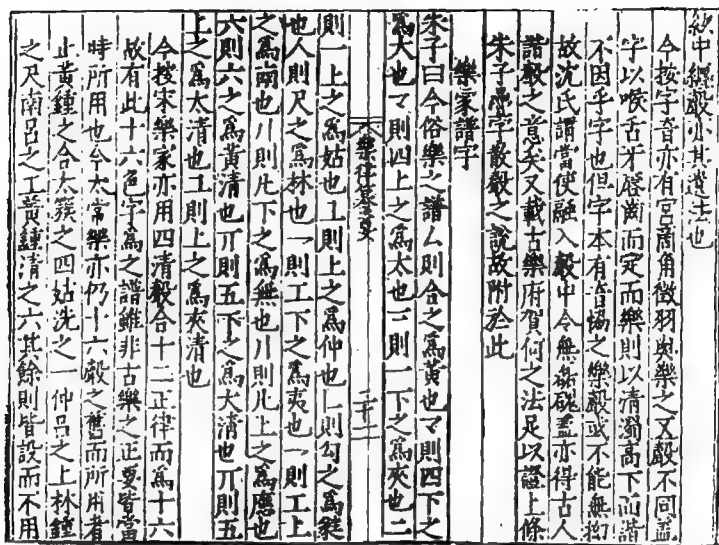 絃中纒聲亦其遺法也
今按字音亦有宮商角徵羽與樂之五聲不同盖
字以喉舌牙唇齒而定而樂則以清濁高下而諧
不因乎字也但字本有音協之樂聲或不能無拘
故沈氏謂當使融入聲中令無磊磈盖亦得古人
諧聲之意矣又載古樂府賀何之法足以證上條
朱子疊字散聲之說故附於此
樂家譜字
朱子曰今俗樂之譜厶則合之爲黃也マ則四下之
爲大也マ則四上之爲太也二則一下之爲夾也二
樂律纂要
二十二
則一上之爲姑也㇄則上之爲仲也㇄則勾之爲蕤
也人則尺之爲林也㇐則工下之爲夷也㇐則工上
之爲南也〢則凡下之爲無也〢則凡上之爲應也
六則六之爲黃清也丌則五下之爲大清也丌則五
上之爲太清也㇄則上之爲夾清也
今按宋樂家亦用四清聲合十二正律而爲十六
故有此十六色字爲之譜雖非古樂之正要皆當
時所用也今太常樂亦仍十六聲之舊而所用者
止黃鍾之合太簇之四姑洗之一仲呂之上林鍾
之尺南呂之工黃鍾清之六其餘則皆設而不用